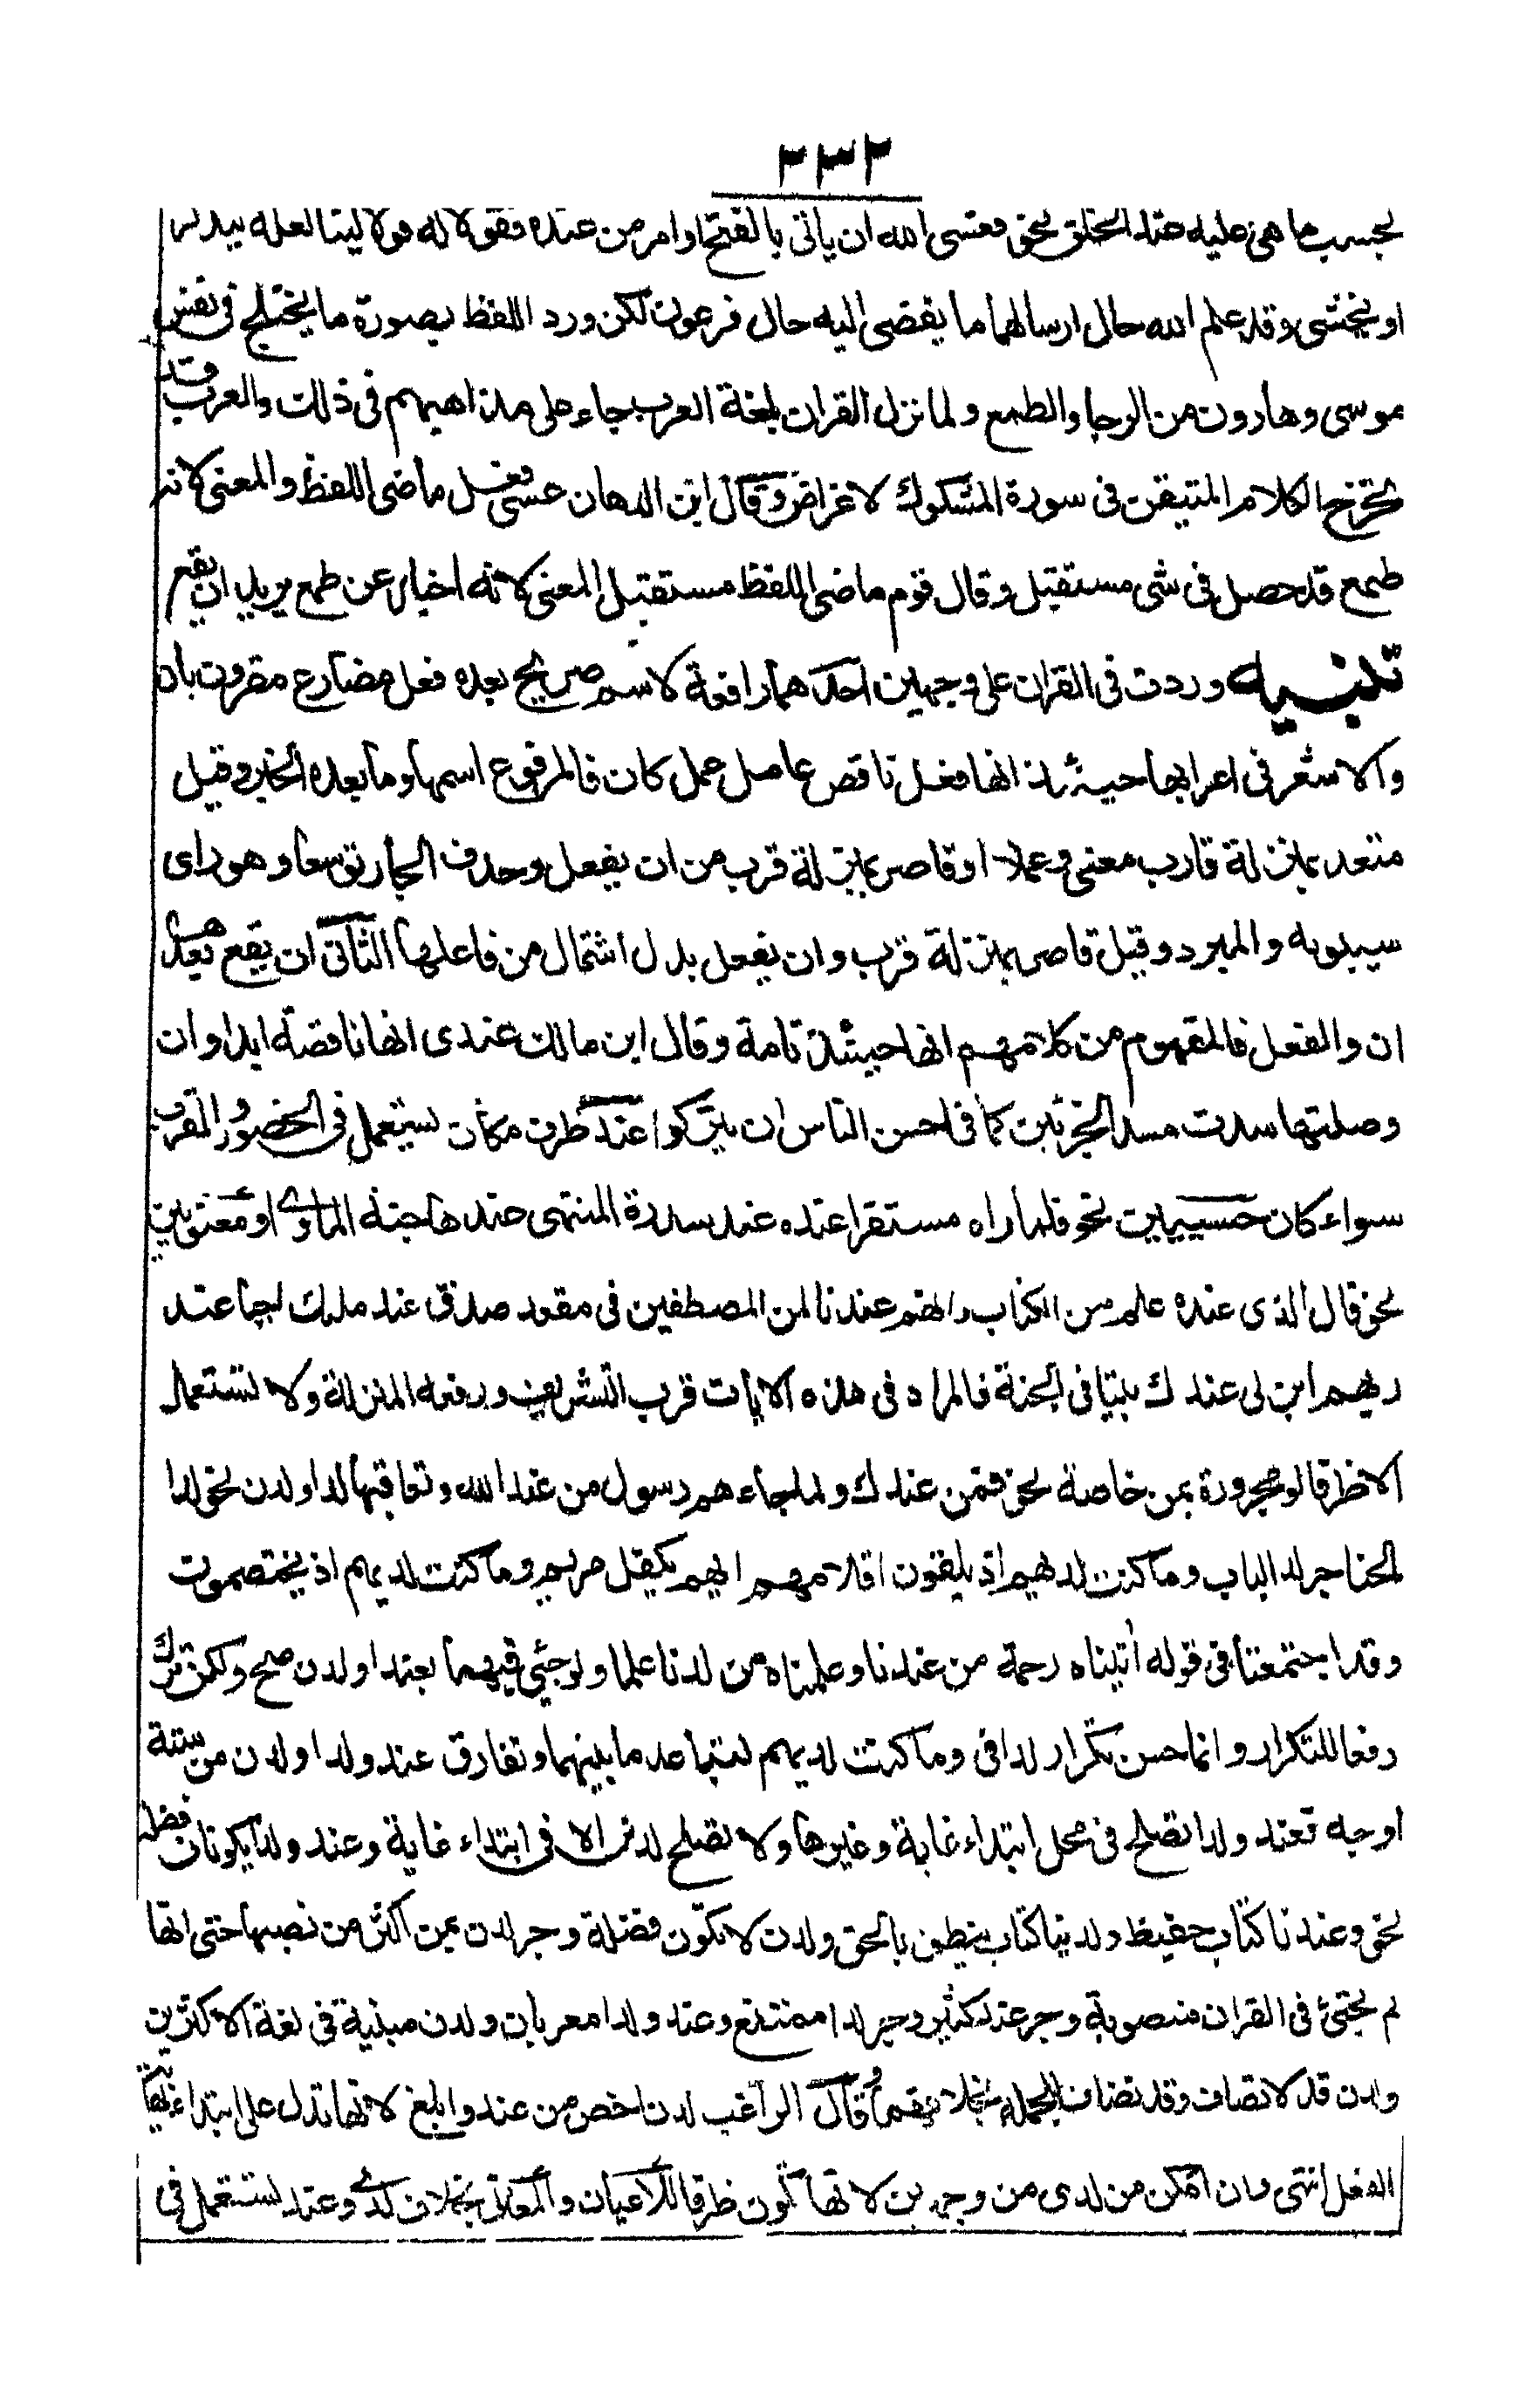 ٢٣٢
بحسب ما هى عليه عند الخلق نحو فعسى الله ان ياتى بالفتح او امر من عنده فقولا له قولا لينا لعله يتذكر
او يخشى وقد علم الله حال ارسالهما ما يفضى اليه حال فرعون لكن ورد اللفظ بصورة ما يختلج فى نفس
موسى وهارون من الرجا والطمع ولما نزل القران بلغة العرب جاء على مذاهبهم فى ذلك والعرب قد
تخرج الكلام المتيقن فى سورة المشكوك لاغراض وقال ابن الدهان عسى فعل ماضى اللفظ والمعنى لانه
طمع قد حصل فى شى مستقبل وقال قوم ماضى اللفظ مستقبل المعنى لانه اخبار عن طمع يريد ان يقع
تنبيه وردت فى القران على وجهين احدهما رافعة لاسم صريح بعده فعل مضارع مقرون بان
والاشعر فى اعرابها حينئذ انها فعل ناقص عامل عمل كان فالمرفوع اسمها وما بعده الخبر وقيل
متعد بمنزلة قارب معنى وعملا او قاصر بمنزلة قرب من ان يفعل وحذف الجار توسعا وهو راى
سيبويه والمبرد وقيل قاصر بمنزلة قرب وان يفعل بدل اشتمال من فاعلها الثانى ان يقع بعدها
ان والفعل فالمفهوم من كلامهم انها حينئذ تامة وقال ابن مالك عندى انها ناقصة ابدا وان
وصلتها سدت مسد الجزئين كما فى احسب الناس ان يتركوا عند ظرف مكان تستعمل فى الحضور والقرب
سواء كان حسيين نحو فلما راه مستقرا عنده عند سدرة المنتهى عندها جنة الماوى او معنويين
نحو قال الذى عنده علم من الكتاب وانهم عندنا لمن المصطفين فى مقعد صدق عند مليك احيا عند
ربهم ابن لى عندك بيتا فى الجنة فالمراد فى هذه الايات قرب التشريف ورفعة المنزلة ولا تستعمل
الا ظرفا او مجرورة بمن خاصة نحو فمن عندك ولما جاءهم رسول من عند الله وتعاقبها لدا ولدن نحو لدا
الحناجر لدا الباب وما كنت لديهم اذ يلقون اقلامهم ايهم يكفل مريم وما كنت لديهم اذ يختصمون
وقد اجتمعتا فى قوله اتيناه رحمة من عندنا وعلمناه من لدنا علما ولو جئى فيهما بعند او لدن صح ولكن ترك
دفعا للتكرار وانما حسن تكرار لدا فى وما كنت لديهم لتباعد ما بينهما وتفارق عند ولدا ولدن من ستة
اوجه فعند ولدا تصلح فى محل ابتداء غاية وغيرها ولا تصلح لدن الا فى ابتداء غاية وعند ولدا يكونان فضلة
نحو وعندنا كتاب حفيظ ولدينا كتاب ينطق بالحق ولدن لا تكون فضلة وجر لدن بمن اكثر من نصبها حتى انها
لم تجئ فى القران منصوبة وجر عند كثير وجر لدا ممتنع وعند ولدا معربان ولدن مبنية فى لغة الاكثرين
ولدن قد لا تضاف وقد تضاف للجملة بخلافهما وقال الراغب لدن اخص من عند وابلغ لانها تدل على ابتداء نهاية
الفعل انتهى وان امكن من لدى من وجهين لانها تكون ظرفا للاعيان والمعانى بخلاف لدى وعند تستعمل فى